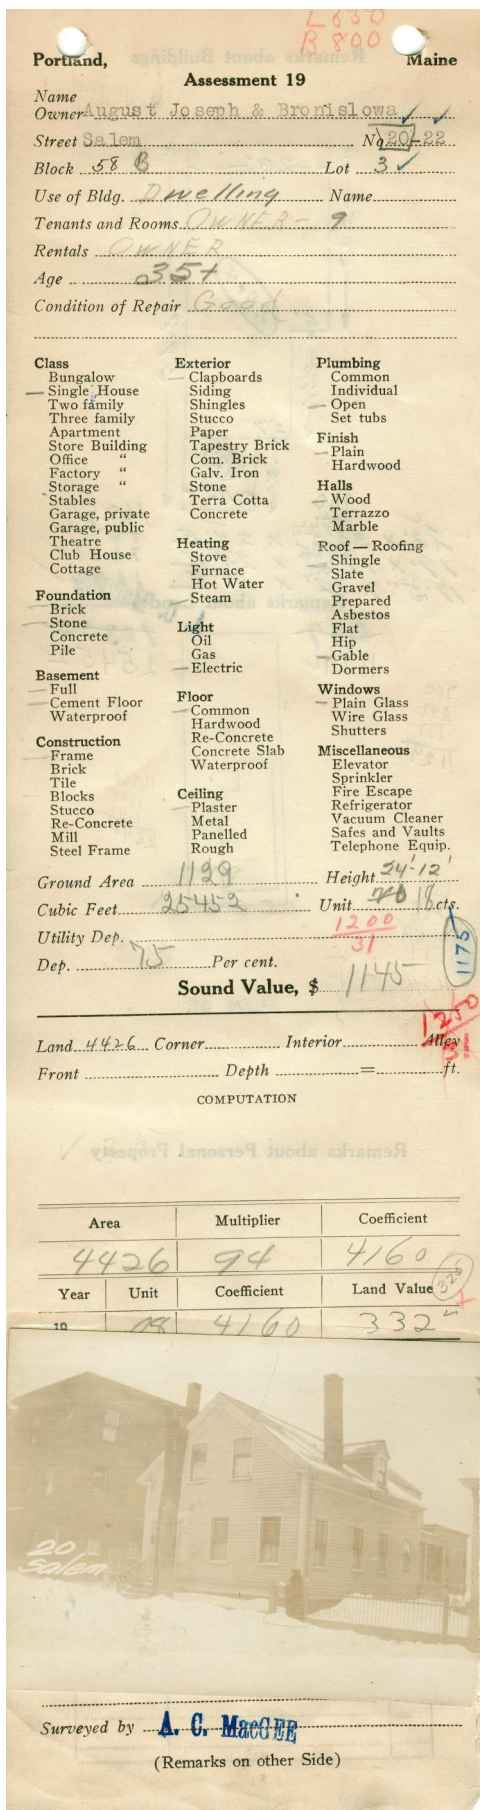 L 650
B 800
Portland, Maine
Assessment 19
Name
Owner August Joseph & Bronislowa
Street Salem No 20-22
Block 58 B Lot 3
Use of Bldg. Dwelling Name
Tenants and Rooms OWNER - 9
Rentals OWNER
Age 35+
Condition of Repair Good
Class
Bungalow
Single House
Two family
Three family
Apartment
Store Building
Office "
Factory "
Storage "
Stables
Garage, private
Garage, public
Theatre
Club House
Cottage
Foundation
Brick
Stone
Concrete
Pile
Basement
Full
Cement Floor
Waterproof
Construction
Frame
Brick
Tile
Blocks
Stucco
Re-Concrete
Mill
Steel Frame
Exterior
Clapboards
Siding
Shingles
Stucco
Paper
Tapestry Brick
Com. Brick
Galv. Iron
Stone
Terra Cotta
Concrete
Heating
Stove
Furnace
Hot Water
Steam
Light
Oil
Gas
Electric
Floor
Common
Hardwood
Re-Concrete
Concrete Slab
Waterproof
Ceiling
Plaster
Metal
Panelled
Rough
Plumbing
Common
Individual
Open
Set tubs
Finish
Plain
Hardwood
Halls
Wood
Terrazzo
Marble
Roof — Roofing
Shingle
Slate
Gravel
Prepared
Asbestos
Flat
Hip
Gable
Dormers
Windows
Plain Glass
Wire Glass
Shutters
Miscellaneous
Elevator
Sprinkler
Fire Escape
Refrigerator
Vacuum Cleaner
Safes and Vaults
Telephone Equip.
Ground Area 1129 Height 24'-12'
Cubic Feet 25452 Unit 18 cts.
Utility Dep. 1200
31
Dep. 75 Per cent.
1175
Sound Value, $ 1145
1250
Land 4426 Corner Interior Alley
Front Depth = ft.
COMPUTATION
Area Multiplier Coefficient
4426 94 4160
Year Unit Coefficient Land Value 325
19 08 4160 332
20
Salem
Surveyed by A. C. MacGEE
(Remarks on other Side)